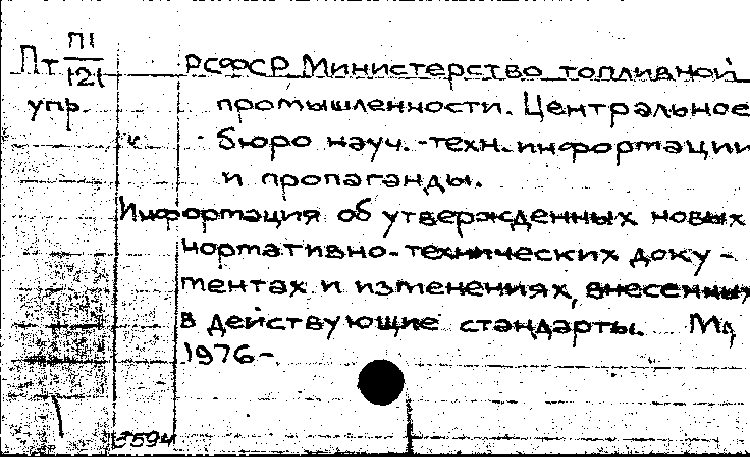 Пт П1
121
упр.
РСФСР Министерство топливной
промышленности. Центральное
бюро науч.-техн. информации
и пропаганды.
Информация об утвержденных новых
нормативно-технических доку-
ментах и изменениях, внесенных
в действующие стандарты. М.,
1976-
3594